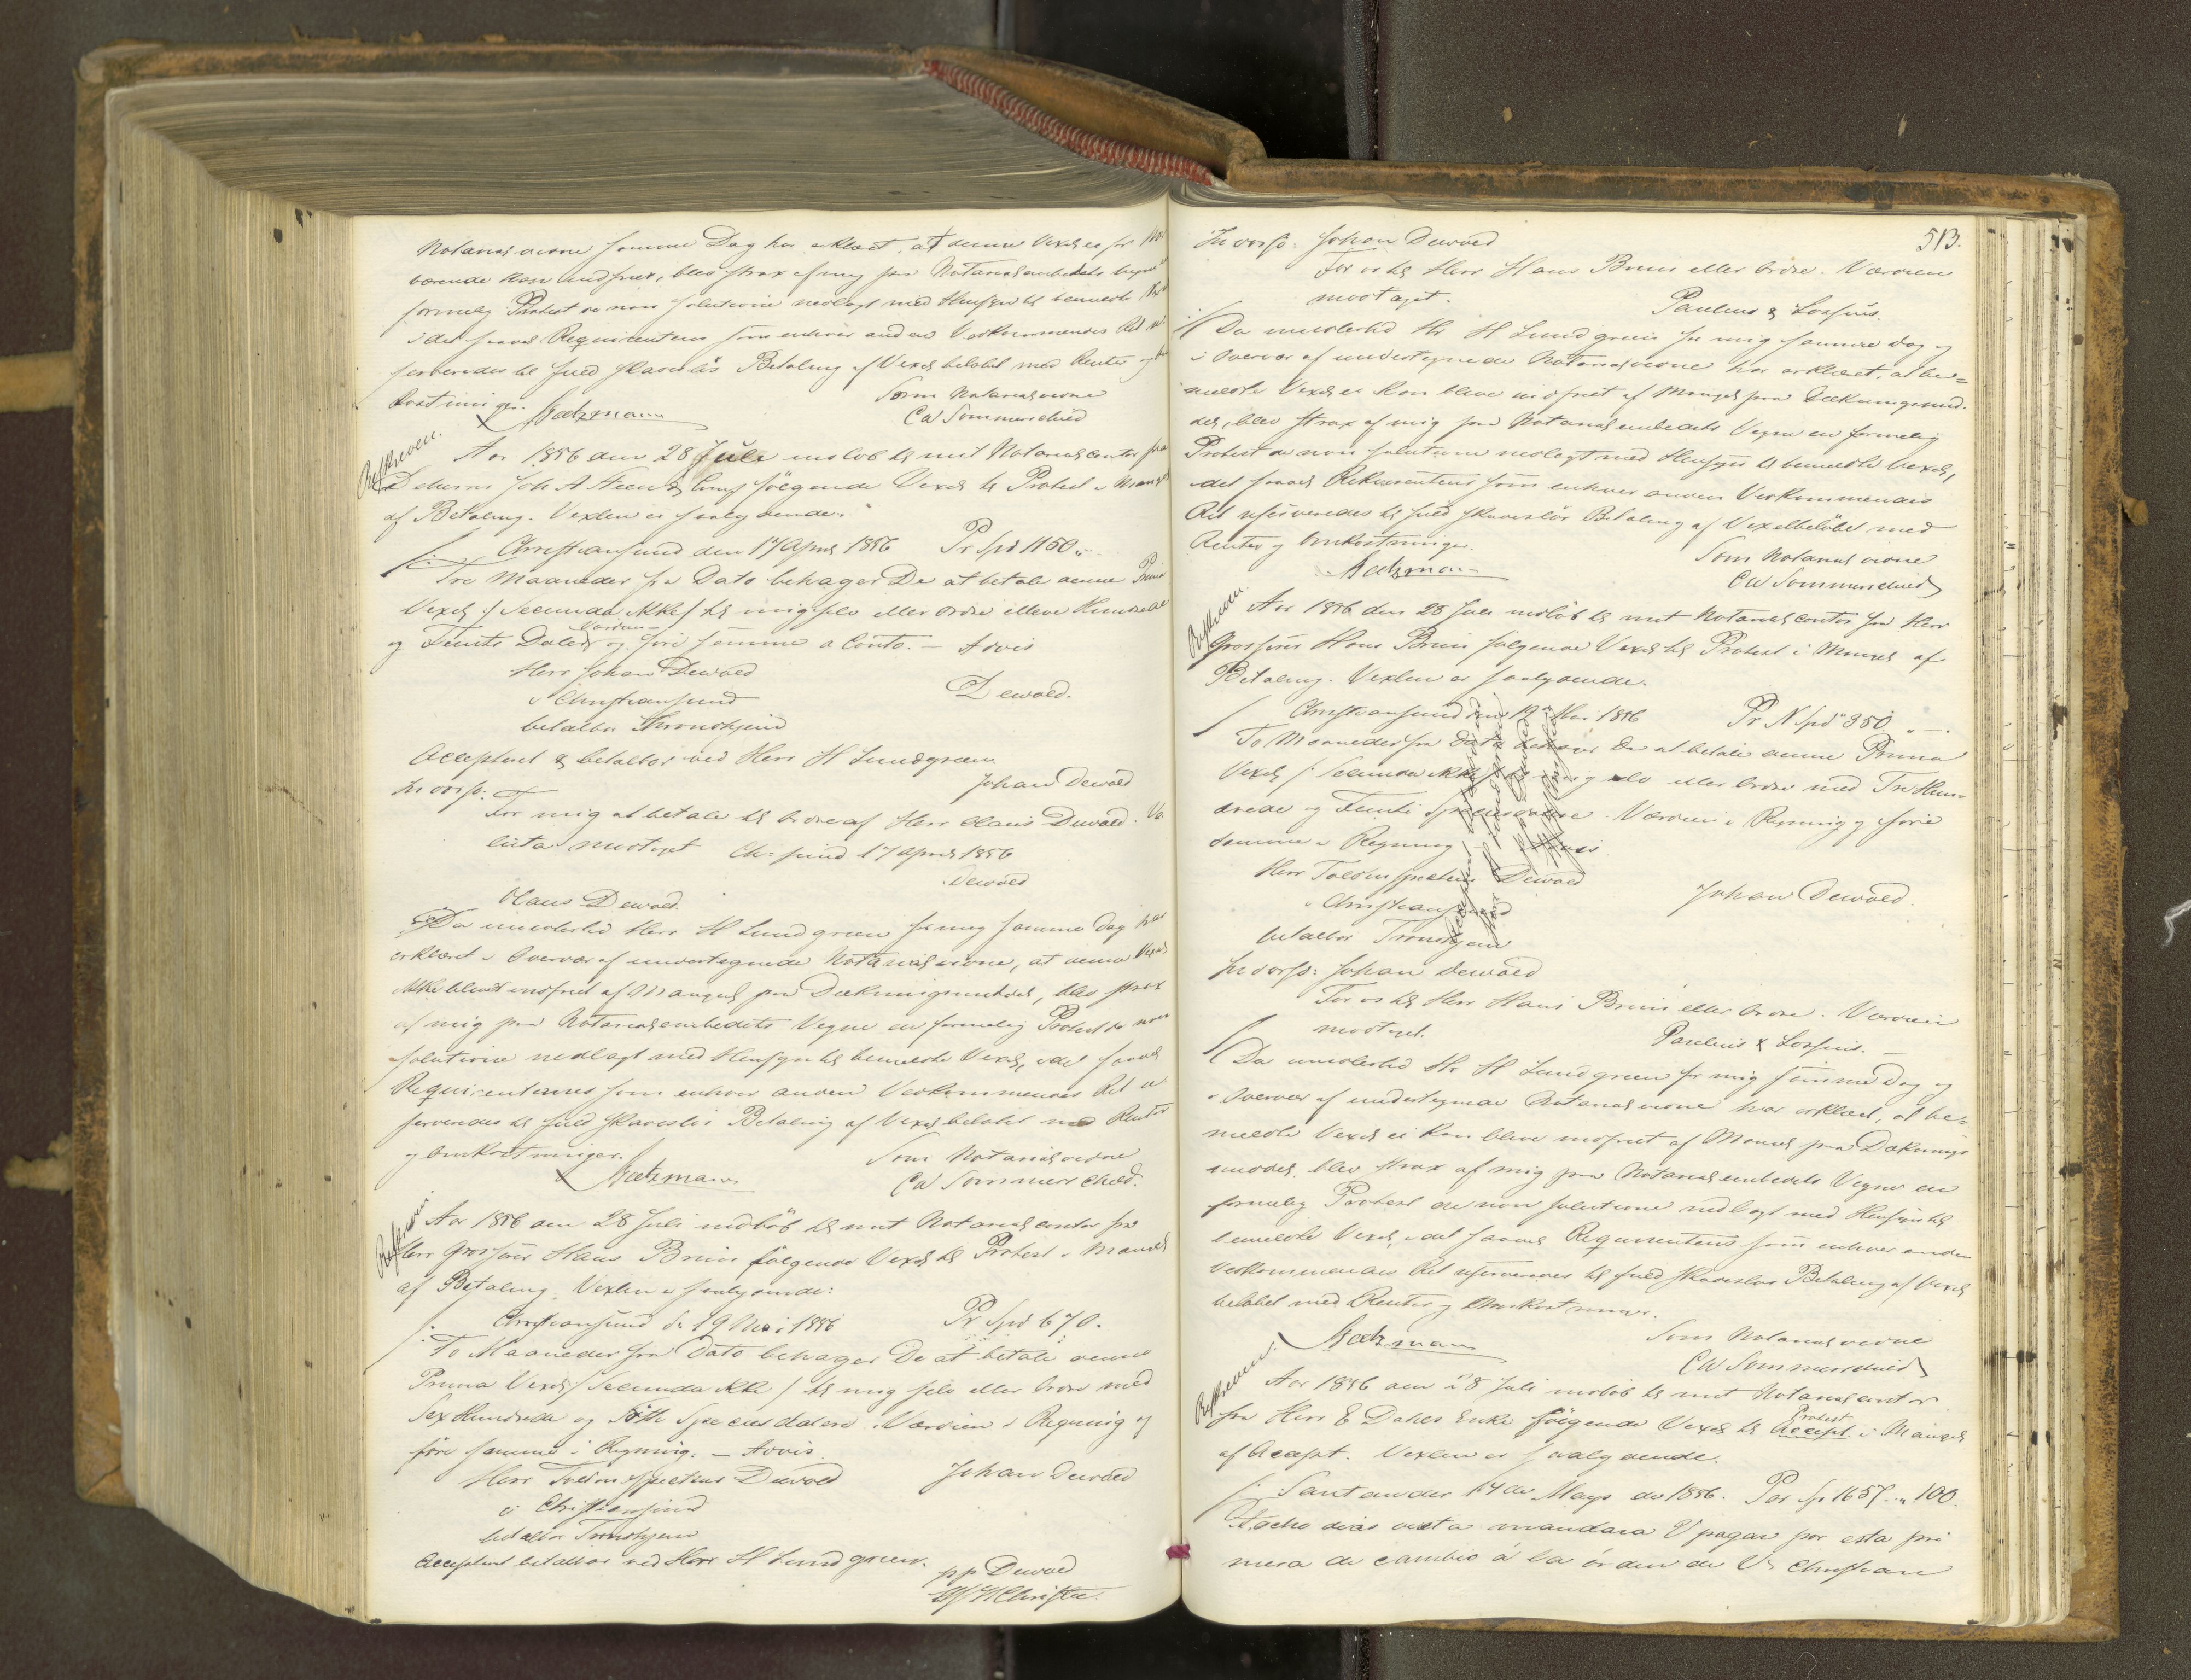 Notarialvidne samme Dag har erklæret, at denne Vexel ei for
værende kan indfries, blev strax af mig paa Notarialembedets Vegne
formelig Protest de non solutione nedlagt med Hensyn til bemeldte
idet saavel Requirentens som enhver anden Vedkommendes Ret
serveredes til fuld skadesløs Betaling af Vexelbeløbet med Renter og
Kostninger. Som Notarialvidne
CW Sommerschild
Beskreven.
Aar 1856 den 28 Juli indløb til mit Notarialcontor fra
D'Herrer Joh A Steen & Comp følgende Vexel til Protest i Mangel
af Betaling. Vexlen er saalydende:
/: Christiansund den 17 April 1856 Pr Spd 1150 „ -
Tre Maaneder fra Dato behager De at betale denne Prima
Vexel /: Secunda ikke / til mig selv eller Ordre elleve Hundrede
Værdien
og Femti Daler og føre samme a Conto. – Advis
Herr Johan Dewold
Dewold.
i Christiansund
betalbar Thronhjem
Accepteret & betalbar ved Herr H Lundgreen.
Johan Dewold
Indorso:
For mig at betale til Ordre af Herr Claus Dewold. Va
luta modtaget Ch: sund 17 April 1856
Dewold
Claus Dewold.
:/ Da imidlertid Herr H Lundgreen for mig samme Dag har
erklæret i Overvær af undertegnede Notarialvidne, at denne Vexel
ikke blev indfriet af Mangel paa Dækningsmiddel, blev strax
af mig paa Notarialembedets Vegne en formelig Protest de non
solutione nedlagt med Hensyn til bemeldte Vexel, idet saavel
Requirenternes som enhver anden Vedkommendes Ret re
serveredes til fuld skadesløs Betaling af Vexelbeløbet med Renter
og Omkostninger. Som Notarialvidne
CW Sommerschild.
Beskreven
Aar 1856 den 28 Juli indløb til mit Notarialcontor fra
Herr Grosserer Hans Bruun følgende Vexel til Protest i Mangel
af Betaling. Vexlen er saalydende:
/: Christiansund d. 19 Mai 1856 Pr Spd 670.
To Maaneder fra Dato behager De at betale denne
Prima Vexel / Secunda ikke / til mig selv eller Ordre med
Sex Hundrede og Sötti Speciesdalere. Værdien i Regning og
före samme i Regning. – Advis.
Herr Toldinspecteur Dewold Johan Dewold
i Christiansund
betalbar Tronhjem
Accepteret betalbar ved Herr H Lundgreen.
pp Dewold
Christie.
513.
Indorso: Johan Dewold
For os til Herr Hans Bruun eller Ordre. Værdien
modtaget.
:/ Da imidlertid Hr H Lundgreen for mig samme Dag og
i Overvær af undertegnede Notarialvidne har erklæret, at be=
meldte Vexel ei kan blive indfriet af Mangel paa Dækningsmid-
del, blev strax af mig paa Notarialembedets Vegne en formelig
Protest de non solutione nedlagt med Hensyn til bemeldte Vexel,
idet saavel Rekvirentens som enhver anden Vedkommendes
Ret reserveredes til fuld skadesløs Betaling af Vexelbeløbet med
Renter og Omkostninger.
Som Notarialvidne
CW Sommerschild
Beskreven.
Aar 1856 den 28 Juli indløb til mit Notarialcontor fra Herr
Grosserer Hans Bruun følgende Vexel til Protest i Mangel af
Betaling. Vexlen er saalydende.
/: Christiansund den 19de Mai 1856 Pr N Spd 350 „ –.
To Maaneder fra Dato behager De at betale denne Prima
Vexel /: Secunda ikke / til mig selv eller Ordre med Tre Hun-
drede og Femti Speciesdalere. Værdien i Regning og føre
samme i Regning. Advis
Herr Toldinspecteur Dewold
Johan Dewold.
i Christiansund
betalbar Tronhjem
Indorso: Johan Dewold
For os til Herr Hans Bruun eller Ordre. Værdien
modtaget.
:/ Da imidlertid Hr H Lundgreen for mig samme Dag og
i Overvær af undertegnede Notarialvidne har erklæret, at be-
meldte Vexel ei kan blive indfriet af Mangel paa Dæknings
middel, blev strax af mig paa Notarialembedets Vegne en
formelig Protest de non solutione nedlagt med Hensyn til
bemeldte Vexel, idet saavel Requirentens som enhver anden
Vedkommendes Ret reserveredes til fuld skadesløs Betaling af Vexel
beløbet med Renter og Omkostninger.
Som Notarialvidne
CW Sommerschild
Beskreven.
Aar 1856 den 28 Juli indløb til mit Notarialcontor
Protest
fra Herr E Dahls Enke følgende Vexel til Accept i Mangel
af Accept. Vexlen er saalydende.
/: Santander 14 de Mayo de 1856. Por 1657 „ 100.
A ocho dias vista mandara V pagar por esta pri
mera de cambio á la órden de Christian